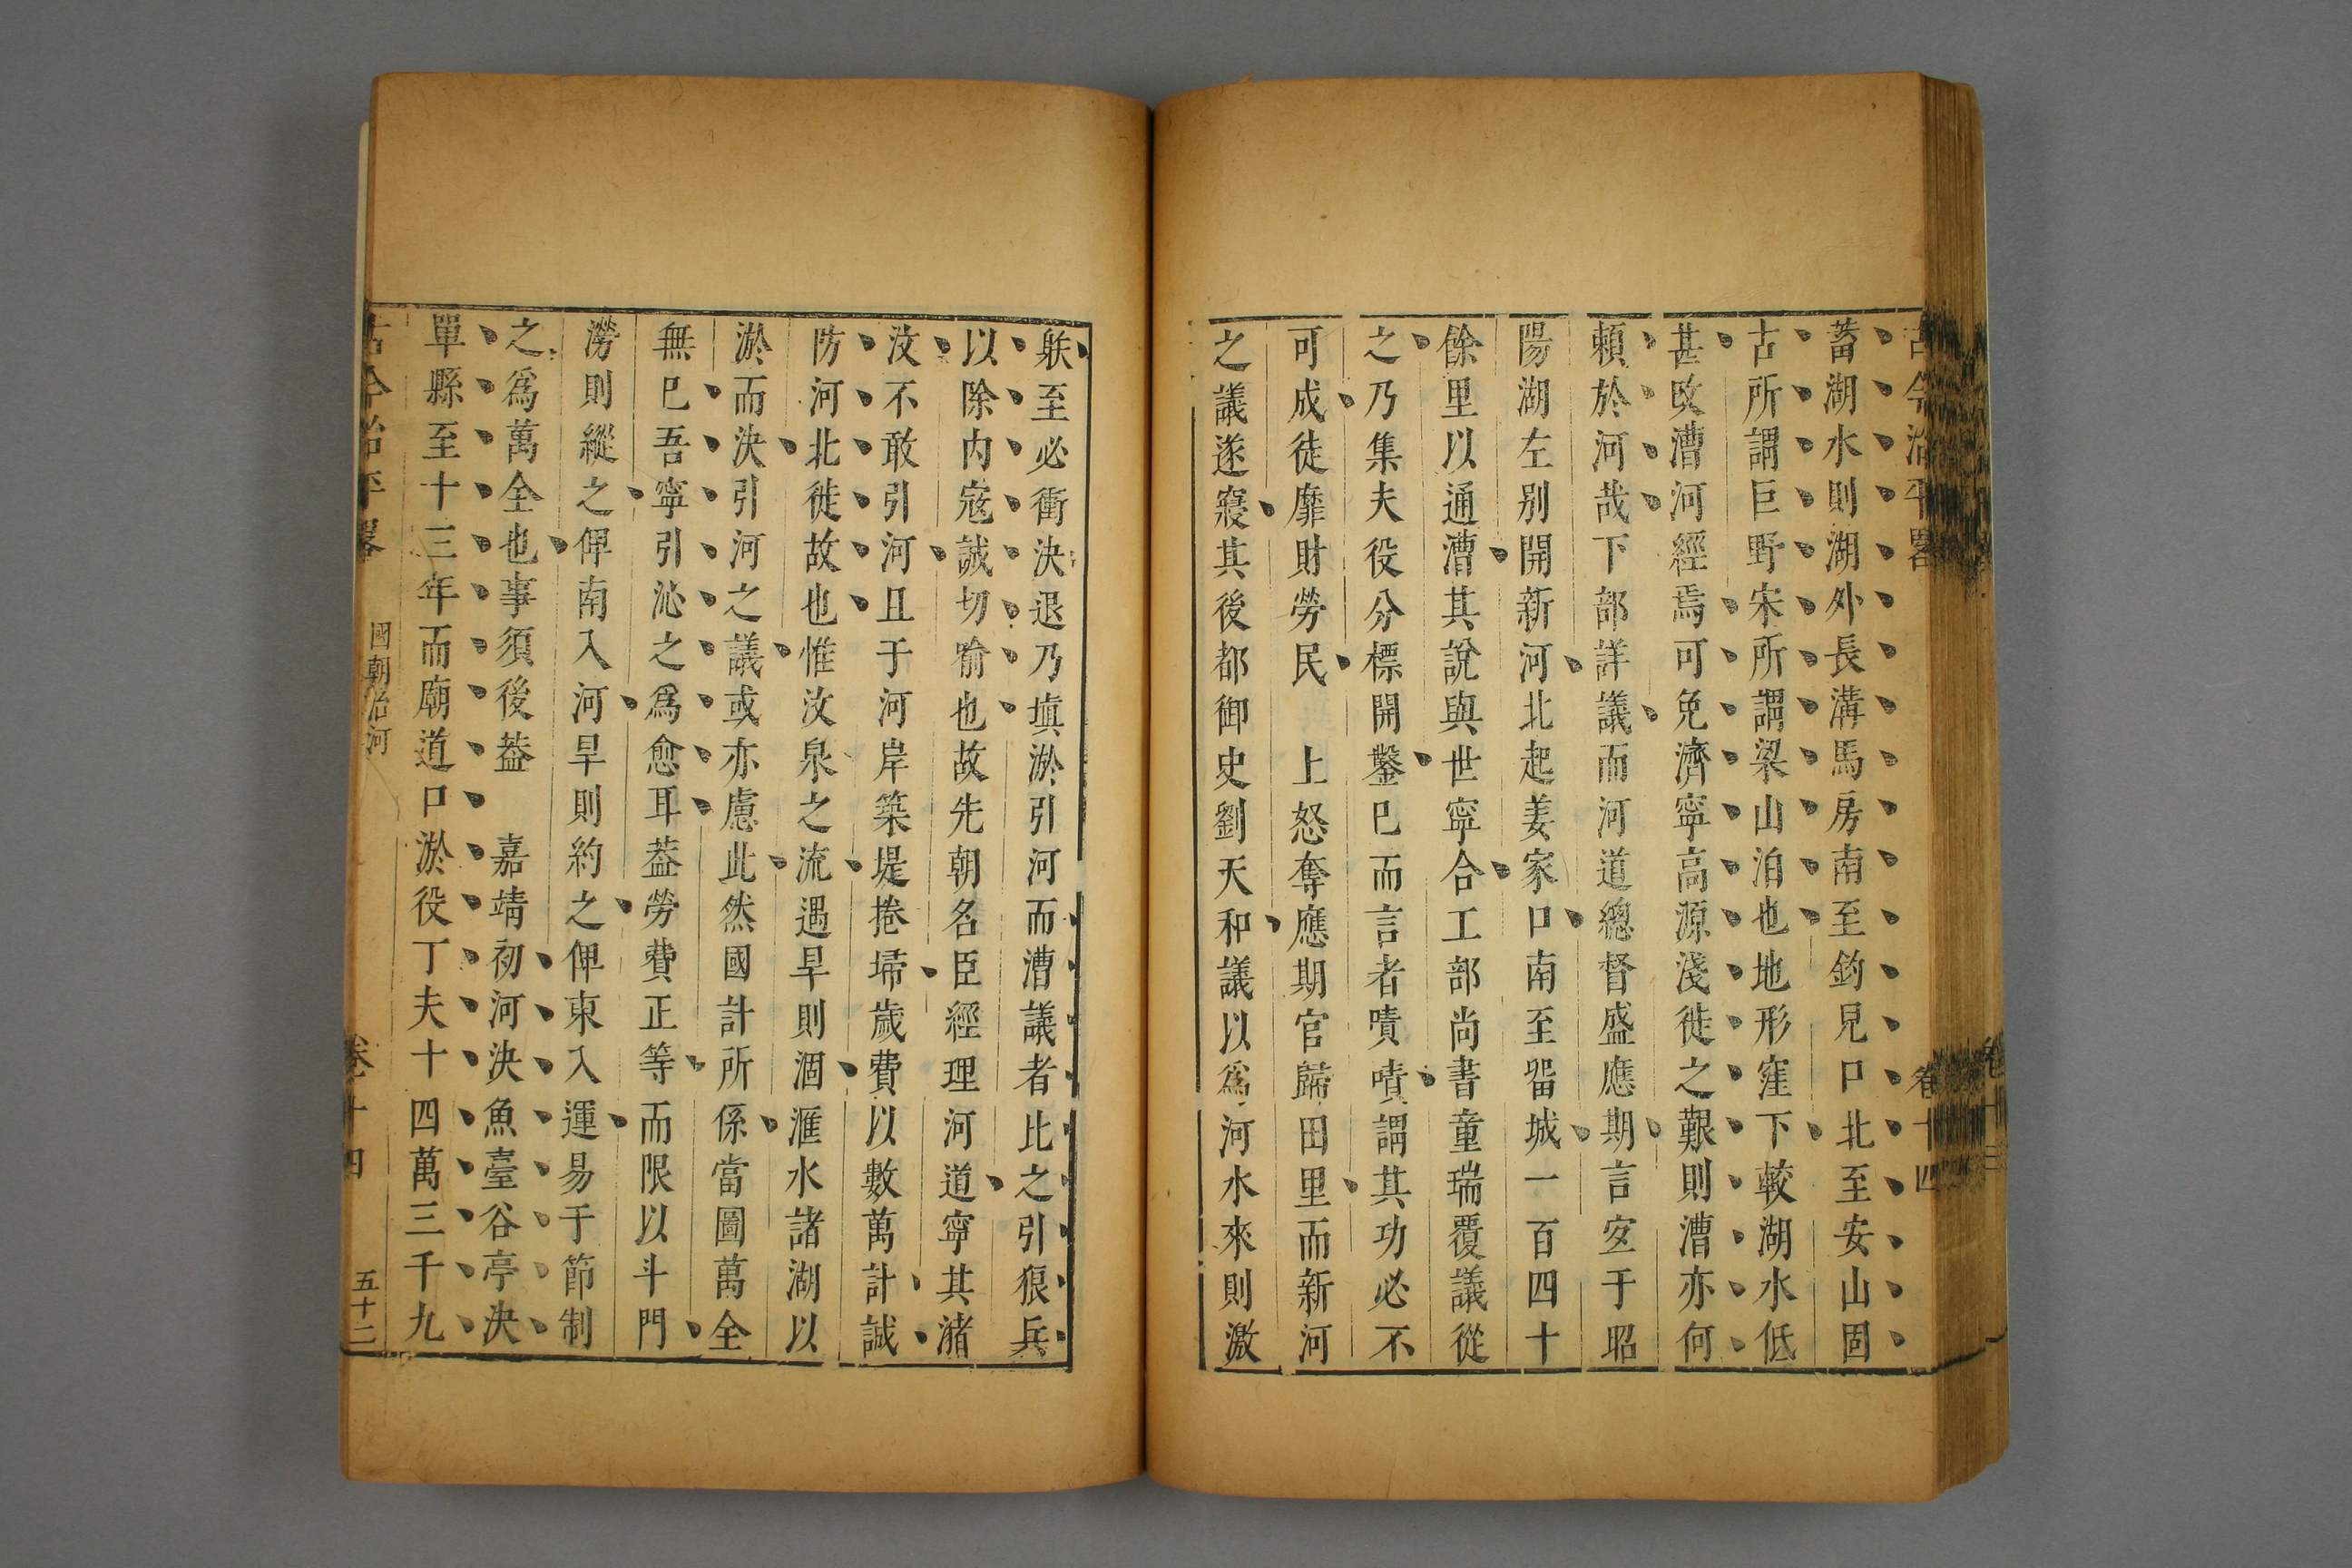 古今治平畧 卷十四
蓄湖水則湖外長溝馬房南至釣見口北至安山固
古所謂巨野宋所謂梁山泊也地形窪下較湖水低
甚改漕河經焉可免濟寧高源淺徙之艱則漕亦何
頼於河哉下部詳議而河道總督盛應期言宐于昭
陽湖左别開新河北起姜家口南至畱城一百四十
餘里以通漕其說與世寧合工部尚書童瑞覆議從
之乃集夫役分標開鑿巳而言者嘖嘖謂其功必不
可成徒靡財勞民 上怒奪應期官歸田里而新河
之議遂寢其後都御史劉天和議以爲河水來則激
躱至必衝決退乃塡淤引河而漕議者比之引狼兵
以除内寇誠切喻也故先朝名臣經理河道寧其瀦
汶不敢引河且于河岸築堤捲埽歲費以數萬計誠
防河北徙故也惟汶泉之流遇旱則涸滙水諸湖以
淤而決引河之議或亦慮此然國計所係當圖萬全
無巳吾寧引沁之爲愈耳葢勞費正等而限以斗門
澇則縱之俾南入河旱則約之俾東入運易于節制
之爲萬全也事須後葢 嘉靖初河決魚臺谷亭決
單縣至十三年而廟道口淤役丁夫十四萬三千九
古今治平畧 國朝治河 卷十四 五十二